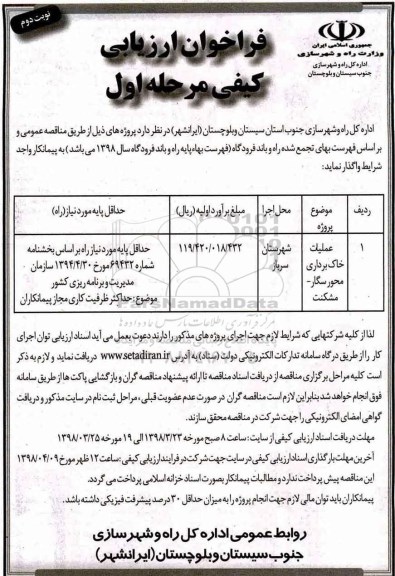 نوبت دوم
جمهوری اسلامی ایران
وزارت راه و شهرسازی
اداره کل راه و شهرسازی
جنوب سیستان و بلوچستان
فراخوان ارزیابی
کیفی مرحله اول
اداره کل راه وشهرسازی جنوب استان سیستان وبلوچستان (ایرانشهر) در نظر دارد پروژه های ذیل از طریق مناقصه عمومی و
بر اساس فهرست بهای تجمع شده راه و باند فرودگاه (فهرست بهاء پایه راه و باند فرودگاه سال ۱۳۹۸ می باشد) به پیمانکار واجد
شرایط واگذار نماید:
ردیف موضوع پروژه محل اجرا مبلغ برآورد اولیه (ریال) حداقل پایه مورد نیاز (راه)
۱ عملیات شهرستان ۱۱۹/۴۲۰/۰۱۸/۴۳۲ حداقل پایه مورد نیاز راه بر اساس بخشنامه
خاک برداری سرباز شماره ۶۹۴۳۲ مورخ ۱۳۹۴/۴/۳۰ سازمان
محور سگار- مدیریت و برنامه ریزی کشور
مشکنت موضوع: حداکثر ظرفیت کاری مجاز پیمانکاران
ParsNamadData
لذا از کلیه شرکتهایی که شرایط لازم جهت اجرای پروژه های مذکور را دارند دعوت بعمل می آید اسناد ارزیابی توان اجرای
کار را از طریق درگاه سامانه تدارکات الکترونیکی دولت (ستاد) به آدرس www.setadiran.ir دریافت نمایند و لازم به ذکر
است کلیه مراحل برگزاری مناقصه از دریافت اسناد مناقصه تا ارائه پیشنهاد مناقصه گران و بازگشایی پاکت ها از طریق سامانه
فوق انجام خواهد شد بنابراین لازم است مناقصه گران در صورت عدم عضویت قبلی، مراحل ثبت نام در سایت مذکور و دریافت
گواهی امضای الکترونیکی را جهت شرکت در مناقصه محقق سازند.
مهلت دریافت اسناد ارزیابی کیفی از سایت: ساعت ۸ صبح مورخه ۱۳۹۸/۳/۲۳ الی ۱۹ مورخه ۱۳۹۸/۰۳/۲۵
آخرین مهلت بارگذاری اسناد ارزیابی کیفی در سایت جهت شرکت در فرایند ارزیابی کیفی: ساعت ۱۲ ظهر مورخ ۱۳۹۸/۰۴/۰۹
این مناقصه پیش پرداخت ندارد و مطالبات پیمانکار بصورت اسناد خزانه اسلامی پرداخت می گردد.
پیمانکاران باید توان مالی لازم جهت انجام پروژه را به میزان حداقل ۳۰ درصد پیشرفت فیزیکی داشته باشد.
روابط عمومی اداره کل راه و شهرسازی
جنوب سیستان و بلوچستان (ایرانشهر)